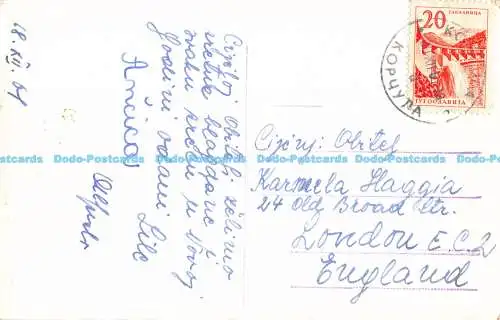 18. XII. 61
Cijeloj Obitelji želimo
sretne blagdane i
svaki
u Novoj
Godini odani
Cijenj: Obitelj
Karmela Haggia
24 Old Broad Str.
London E.C.2
England
20
ЈАБЛАНИЦА
ЈУГОСЛАВИЈА
КОРЧУЛА
Dodo-Postcards Dodo-Postcards Dodo-Postcards Dodo-Postcards Dodo-Postcards